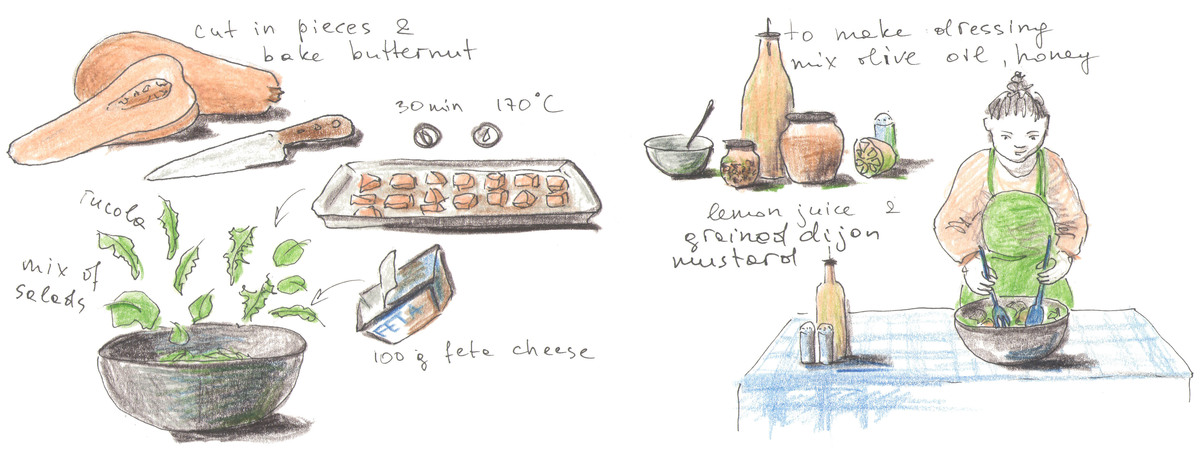 cut in pieces &
bake butternut
30min 170°C
rucola
mix of
salads
FETA
100 g feta cheese
to make dressing
mix olive oil, honey
lemon juice &
grained dijon
mustard